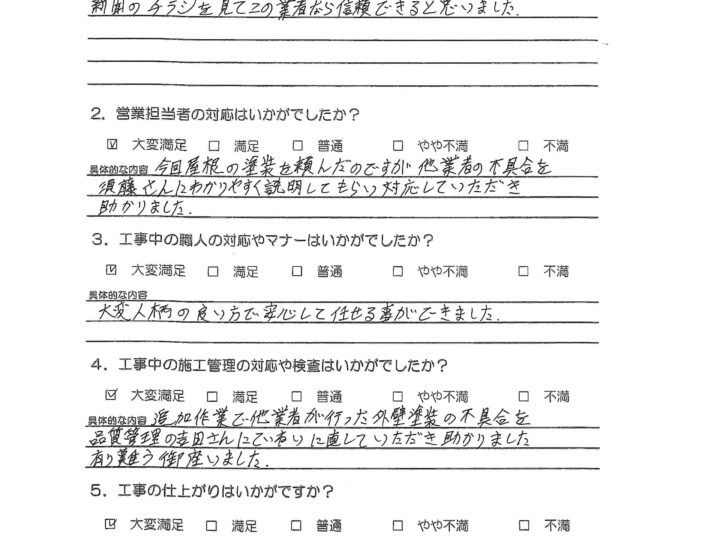 新聞のチラシを見てこの業者なら信頼できると思いました.
2．営業担当者の対応はいかがでしたか？
☑ 大変満足 □ 満足 □ 普通 □ やや不満 □ 不満
具体的な内容 今回屋根の塗装を頼んだのですが他業者の不具合を
須藤さんにわかりやすく説明してもらい対応していただき
助かりました.
3．工事中の職人の対応やマナーはいかがでしたか？
☑ 大変満足 □ 満足 □ 普通 □ やや不満 □ 不満
具体的な内容
大変人柄の良い方で安心して任せる事ができました.
4．工事中の施工管理の対応や検査はいかがでしたか？
☑ 大変満足 □ 満足 □ 普通 □ やや不満 □ 不満
具体的な内容 追加作業で他業者が行った外壁塗装の不具合を
品質管理の吉田さんにていねいに直していただき助かりました
有り難う御座いました.
5．工事の仕上がりはいかがですか？
☑ 大変満足 □ 満足 □ 普通 □ やや不満 □ 不満